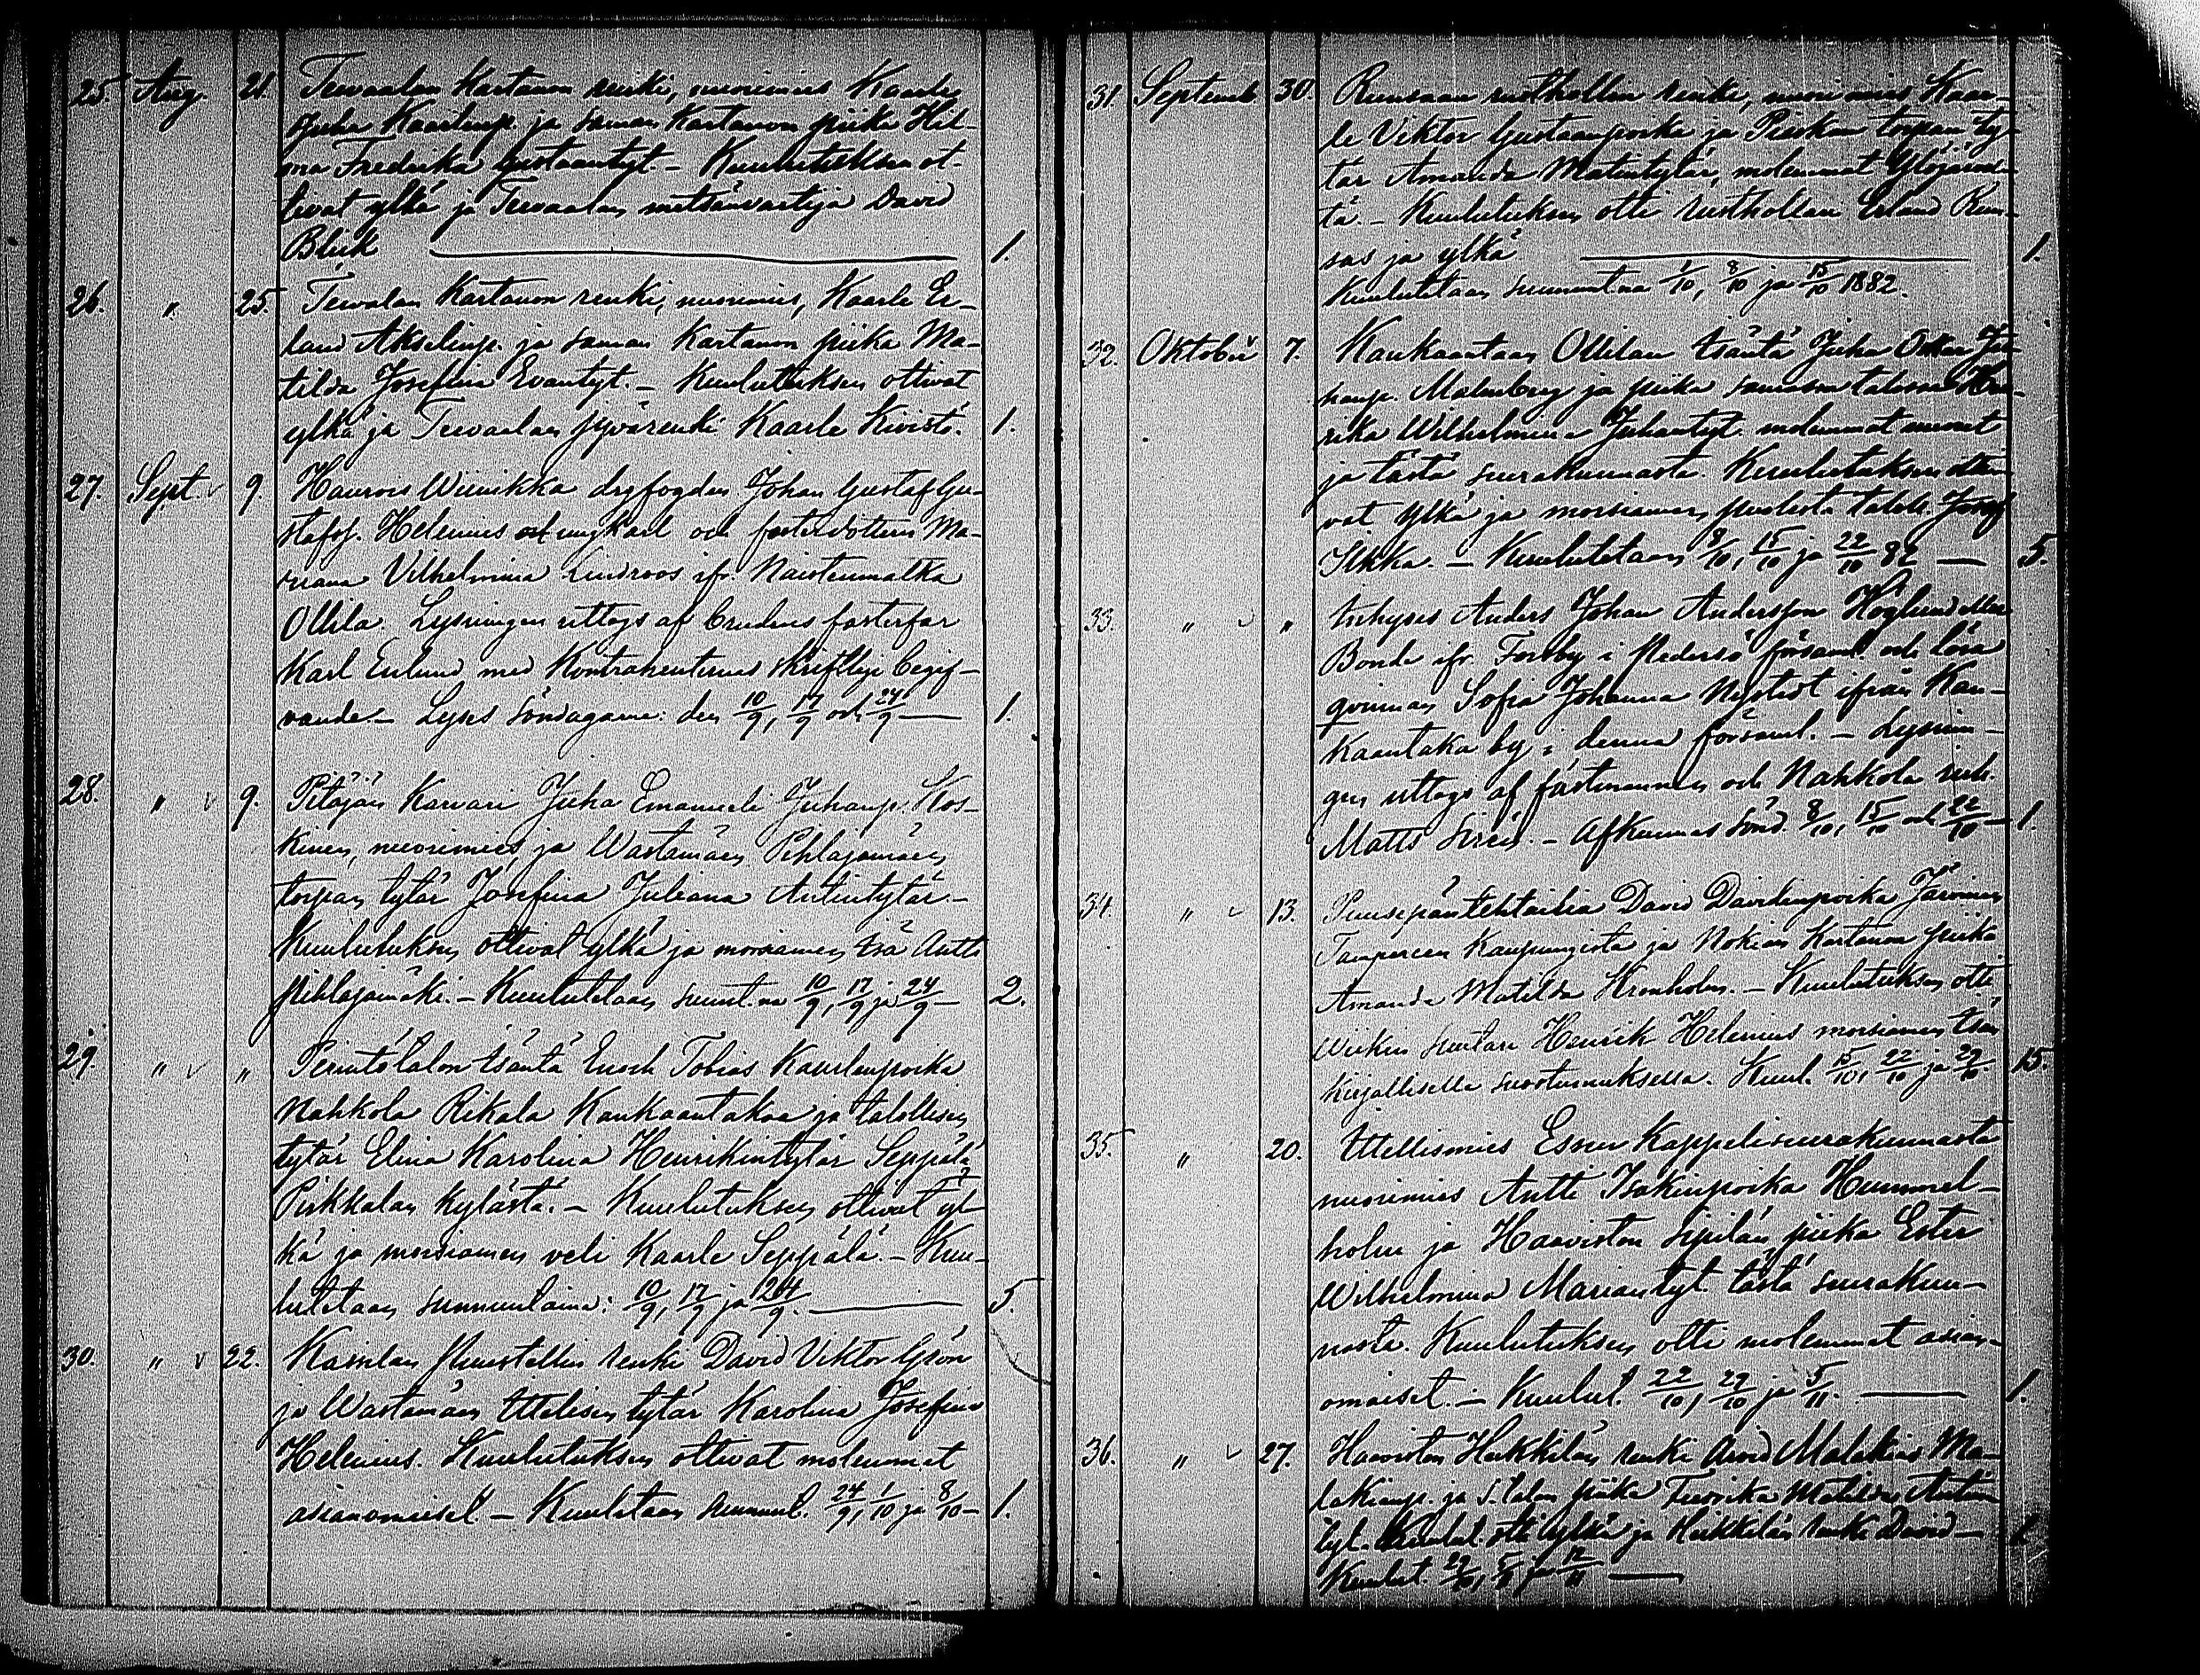 25. Aug. 21. Teevaalan Kartanon renki, nuorimies Kaarle
Juha Kaarlenp. ja saman Kartanon piika Hel-
ma Fredrika Gustaantyt. – Kuulutuksen ot-
tivat ylkä ja Teevaalan metsänvartija David
Blick 1.
26. " 25. Teevalan Kartanon renki, nuorimies, Kaarle Er-
land Akselinp. ja saman Kartanon piika Ma-
tilda Josefina Evantyt. – Kuulutuksen ottivat
ylkä ja Teevaalan jyvärenki Kaarle Kivistö. 1.
27. Sept. v 9. Haurois Wiinikka drgfogden Johan Gustaf Gu-
stafsf. Helenius ungkarl och fosterdottern Ma-
riana Vilhelmina Lindroos ifr. Naistenmatka
Ollila. Lysningen uttogs af brudens fosterfar
Karl Enlund med Kontrahenternas skriftliga begif-
vande. – Lyses Söndagarne: den 10/9, 17/9 och 24/9 — 1.
28. " v 9. Pitäjän Karvari Juha Emanueli Juhanp. Kos-
kinen, nuorimies ja Wastamäen Pihlajamäen
torpan tytär Josefina Juliana Antintytär. –
Kuulutuksen ottivat ylkä ja morsiamen isä Antti
Pihlajamäki. – Kuulutetaan sunnt.na 10/9, 17/9 ja 24/9 — 2.
29. " v " Perintötalon isäntä Enoch Tobias Kaarlenpoika
Nahkola Rikala Kankaantakaa ja talollisen
tytär Elina Karolina Henrikintytär Seppälä
Pirkkalan kylästä. – Kuulutuksen ottivat yl-
kä ja morsiamen veli Kaarle Seppälä. – Kuu-
lutetaan sunnuntaina: 10/9, 17/9 ja 24/9. 5.
30. " v 22. Kaivilan renki David Viktor Grön
ja Wastamäen Itellisen tytär Karolina Josefina
Helenius. Kuulutuksen ottivat molemmat
asianomaiset – Kuulutetaan sunnunt. 24/9, 1/10 ja 8/10 – 1.
31. Septemb 30. Runsaan rusthollin renki, nuorimies Kaar-
le Viktor Gustaanpoika ja Pierkan torpan ty-
tär Amanda Matintytär, molemmat Ylöjärvel-
tä. – Kuulutuksen otti rusthollari Erland Run-
sas ja ylkä 1.
Kuulutetaan sunnuntna 1/10, 8/10 ja 15/10 1882.
32. Oktober 7. Kankaantaan Ollilan isäntä Juha Oskar Ju-
hanp. Malmberg ja piika samassa talossa Hen-
rika Wilhelmina Juhantyt. molemmat nuoret
ja tästä seurakunnasta. Kuulutuksen otti-
vat ylkä ja morsiamen puolesta taloll. Josef
Ilkka. – Kuulutetaan 8/10, 15/10 ja 22/10 82 — 5.
33. " v " Inhyses Anders Johan Andersson Höglund eller
Bonde ifr. Forsby i Pedersö församl. och lösa
qvinnan Sofia Johanna Nystedt ifrån Kan-
kaantaka by i denna församl. – Lysnin-
gen uttogs af fästmannen och Nahkola
Matts Sirén. – Afkunnas Sönd. 8/10, 15/10 och 22/10 — 1.
34. " v 13. Puusepäntehtailia David Davidinpoika Järvinen
Tampereen Kaupungista ja Nokian Kartanon piika
Amanda Matilda Kronholm. – Kuulutuksen otti
Wiikin suutari Henrik Helenius morsiamen isän
kirjallisella suostumuksella. Kuul. 15/10, 22/10 ja 29/10. 15.
35. " 20. Itellismies Esson Kappeliseurakunnasta
nuorimies Antti Isakinpoika Hummel-
holm ja Haaviston Sipilän piika Ester
Wilhelmina Mariantyt. tästä seurakun-
nasta. Kuulutuksen otti molemmat asian-
omaiset. – Kuulut. 22/10, 29/10 ja 5/11. 1.
36. " v 27. Haaviston Heikkilän renki Arvid Malakias Ma-
lakianp. ja s. talon piika Fredrika Matilda Antin
tyt. Kuulut. otti ylkä ja Heikkilän renki David —
Kuulut. 29/10, 5/11 ja 12/11